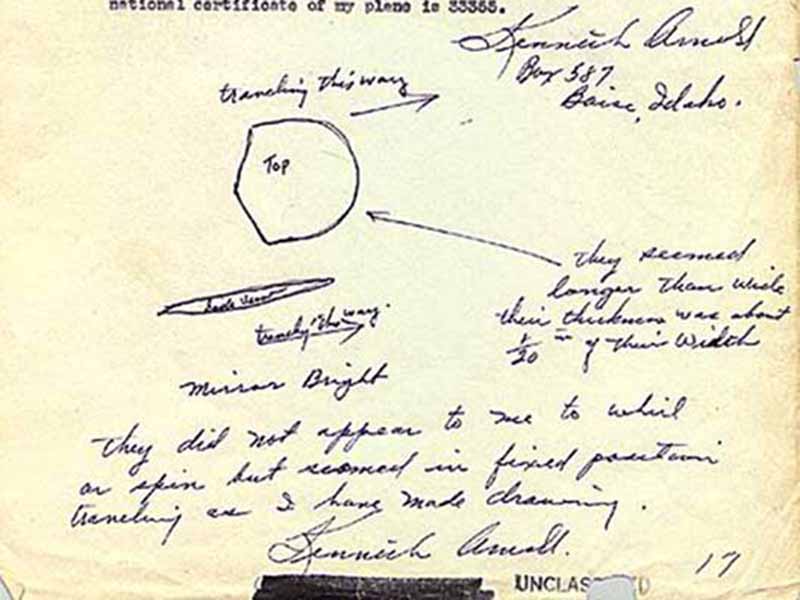 national certificate of my plane is 33355.
Kenneth Arnold
Box 587
Boise, Idaho.
traveling this way
Top
they seemed
longer than wide
their thickness was about
1/20 th of their width
side view
traveling this way.
Mirror Bright
they did not appear to me to whirl
or spin but seemed in fixed position
traveling as I have made drawing.
Kenneth Arnold.
17
UNCLASSIFIED